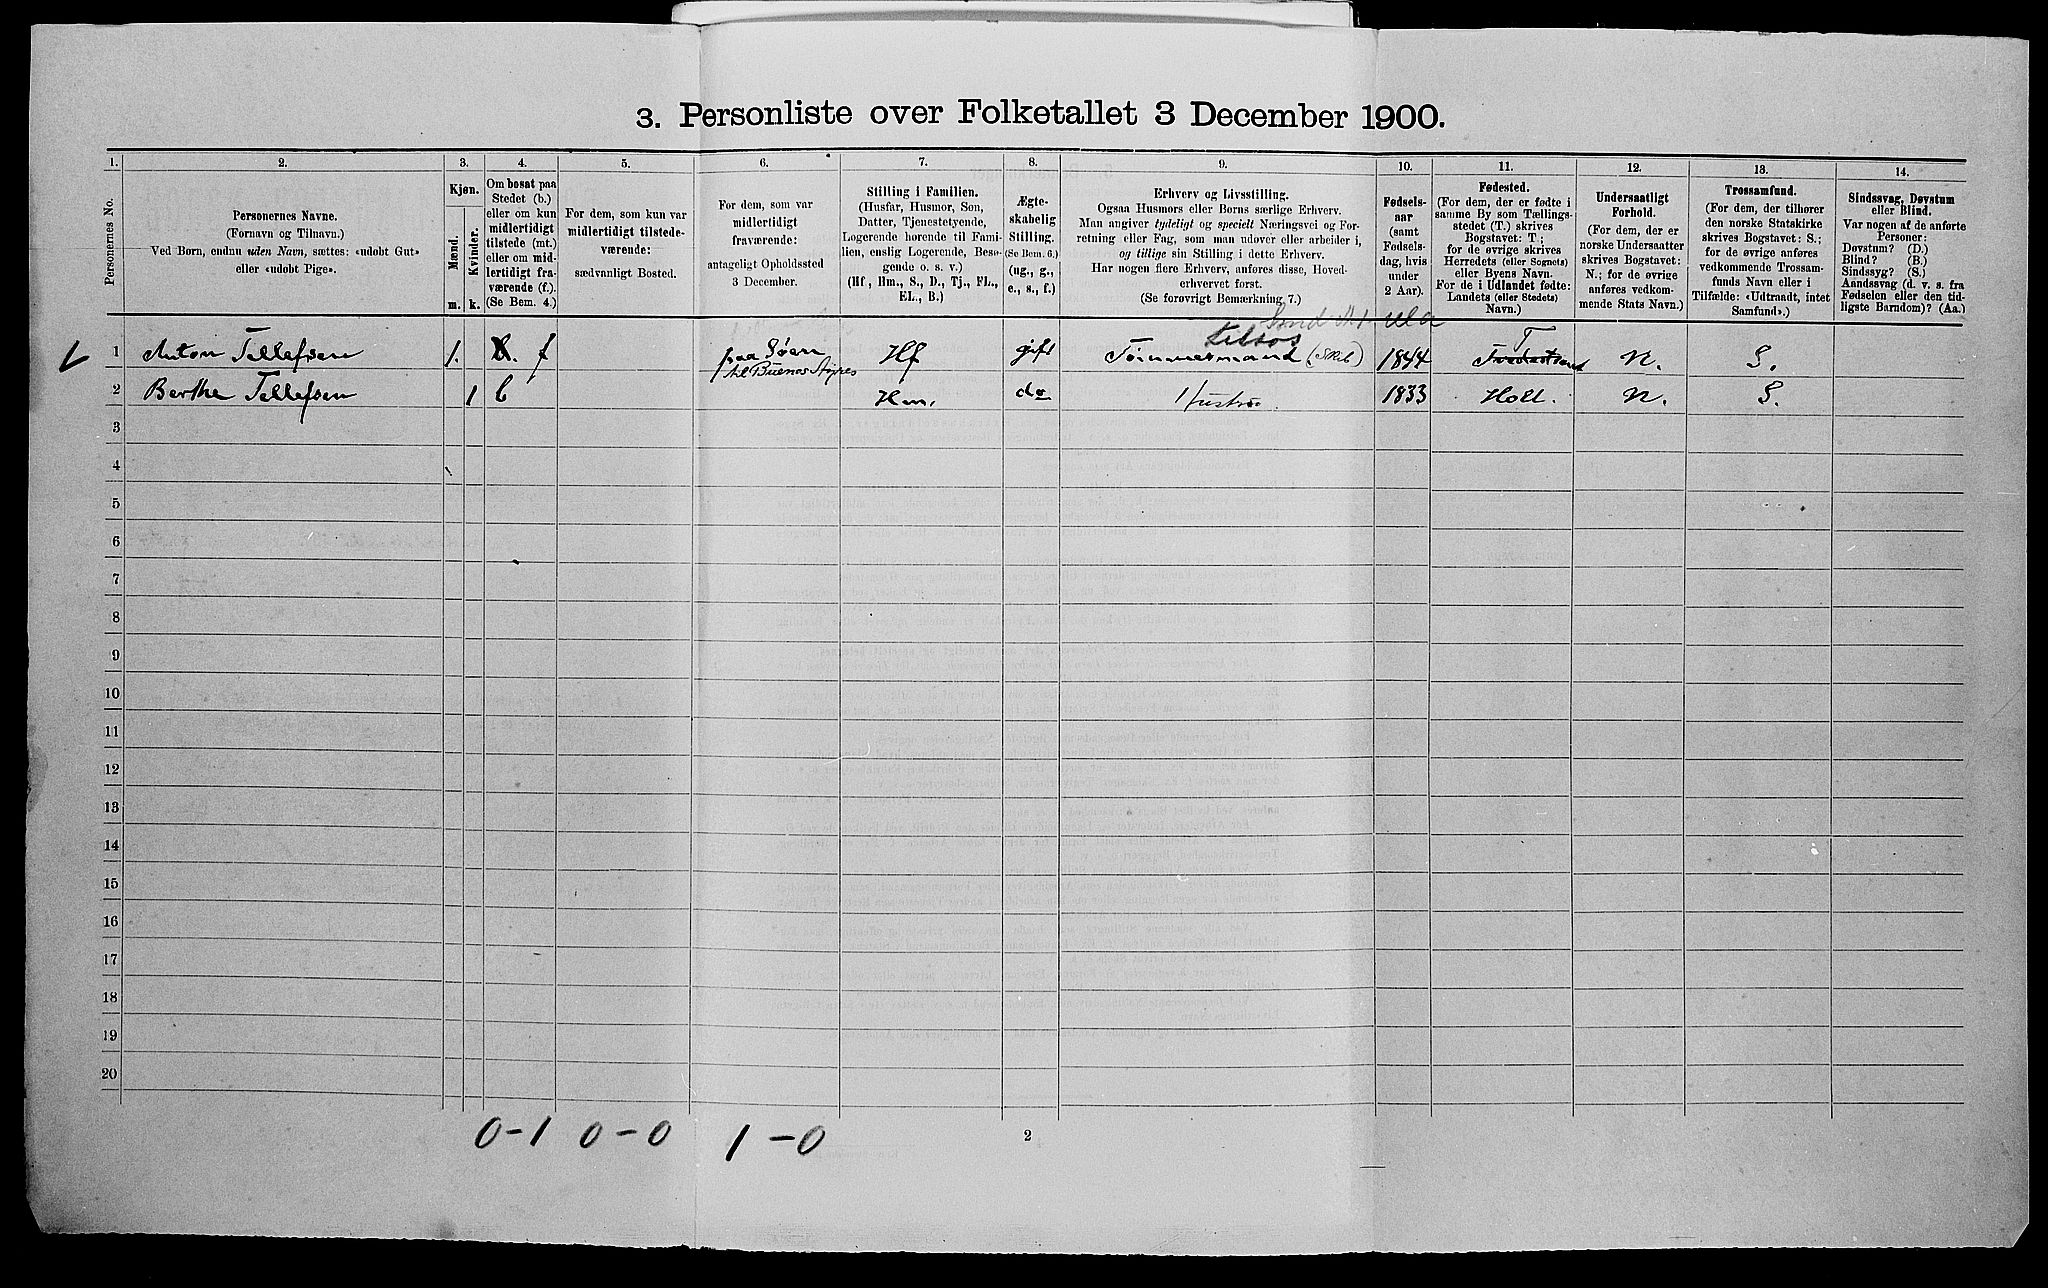 3. Personliste over Folketallet 3 December 1900.
1. 2. 3. 4. 5. 6. 7. 8. 9. 10. 11. 12. 13. 14.
Personernes No.
Personernes Navne.
(Fornavn og Tilnavn.)
Ved Børn, endnu uden Navn, sættes: «udøbt Gut»
eller «udøbt Pige».
Kjøn.
Mænd.
Kvinder.
m. k.
Om bosat paa
Stedet (b.)
eller om kun
midlertidigt
tilstede (mt.)
eller om mid-
lertidigt fra-
værende (f.)
(Se Bem. 4.)
For dem, som kun var
midlertidigt tilstede-
værende:
sædvanligt Bosted.
For dem, som var
midlertidigt
fraværende:
antageligt Opholdssted
3 December.
Stilling i Familien.
(Husfar, Husmor, Søn,
Datter, Tjenestetyende,
Logerende hørende til Fami-
lien, enslig Logerende, Besø-
gende o. s. v.)
(Hf, Hm., S., D., Tj., FL.,
EL., B.)
Ægte-
skabelig
Stilling.
(Se Bem. 6.)
(ug., g.,
e., s., f.)
Erhverv og Livsstilling.
Ogsaa Husmors eller Børns særlige Erhverv.
Man angiver tydeligt og specielt Næringsvei og For-
retning eller Fag, som man udøver eller arbeider i,
og tillige sin Stilling i dette Erhverv.
Har nogen flere Erhverv, anføres disse, Hoved-
erhvervet først.
(Se forøvrigt Bemærkning 7.)
Fødsels-
aar
(samt
Fødsels-
dag, hvis
under
2 Aar).
Fødested.
(For dem, der er fødte i
samme By som Tællings-
stedet (T.) skrives
Bogstavet: T.;
for de øvrige skrives
Herredets (eller Sognets)
eller Byens Navn.
For de i Udlandet fødte:
Landets (eller Stedets)
Navn.)
Undersaatligt
Forhold.
(For dem, der er
norske Undersaatter
skrives Bogstavet:
N.; for de øvrige
anføres vedkom-
mende Stats Navn.)
Trossamfund.
(For dem, der tilhører
den norske Statskirke
skrives Bogstavet: S.;
for de øvrige anføres
vedkommende Trossam-
funds Navn eller i
Tilfælde: «Udtraadt, intet
Samfund».)
Sindssvag, Døvstum
eller Blind.
Var nogen af de anførte
Personer:
Døvstum? (D.)
Blind? (B.)
Sindssyg? (S.)
Aandssvag (d. v. s. fra
Fødselen eller den tid-
ligste Barndom)? (Aa.)
tilsøs
T
1 Anton Tellefsen 1. b. f paa Søen Hf gift Tømmermand (Skib) 1844 N. S.
til Buenos Ayres
2 Berthe Tellefsen 1 b Hm. do Hustru. 1833 Holt. N. S.
3
4
5
6
7
8
9
10
11
12
13
14
15
16
17
18
19
20
0-1 0-0 1-0
2